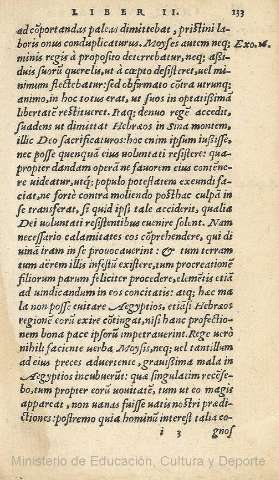 LIBER II. 133
ad cōportandas paleas dimittebat, pristini la
boris onus conduplicaturus. Moyses autem neq; Exo. 16.
minis regis à proposito deterrebatur, neq; assi
duis suorū querelis, ut à cœpto desisteret, uel mi
nimum flectebatur: sed obfirmato cōtra utrunq;
animo, in hoc totus erat, ut suos in optatissimā
libertatē restitueret. Itaq; denuo regē accedit,
suadens ut dimittat Hebræos in Sina montem,
illic Deo sacrificaturos: hoc enim ipsum iussisse,
nec posse quenquā eius uoluntati resistere: qua-
propter dandam operā ne fauorem eius contēne-
re uideatur, utq; populo potestatem exeundi fa-
ciat, ne fortè contrà moliendo posthac culpā in
se transferat, si quid ipsi tale acciderit, qualia
Dei uoluntati resistentibus euenire solent. Nam
necessario calamitates eos cōprehendere, qui di
uinā iram in se prouocauerint: & tum terram
tum aërem illis infestū existere, tum procreationē
filiorum parum feliciter procedere, elemētis etiā
ad uindicandum in eos concitatis: atq; hæc ma
la non posse euitare Aegyptios, etiāsi Hebræos
regione eorū exire cōtingat, nisi hanc profectio-
nem bona pace ipsorū impetrauerint. Rege uerò
nihili faciente uerba Moysis, neq; uel tantillum
ad eius preces aduertente, grauissima mala in
Aegyptios incubuerūt: quæ singulatim recēse-
bo, tum propter eorū nouitatē, tum ut eo magis
appareat, non uanas fuisse uatis nostri prædi-
ctiones: postremo quia hominū interest talia co-
i 3 gnos
Ministerio de Educación, Cultura y Deporte